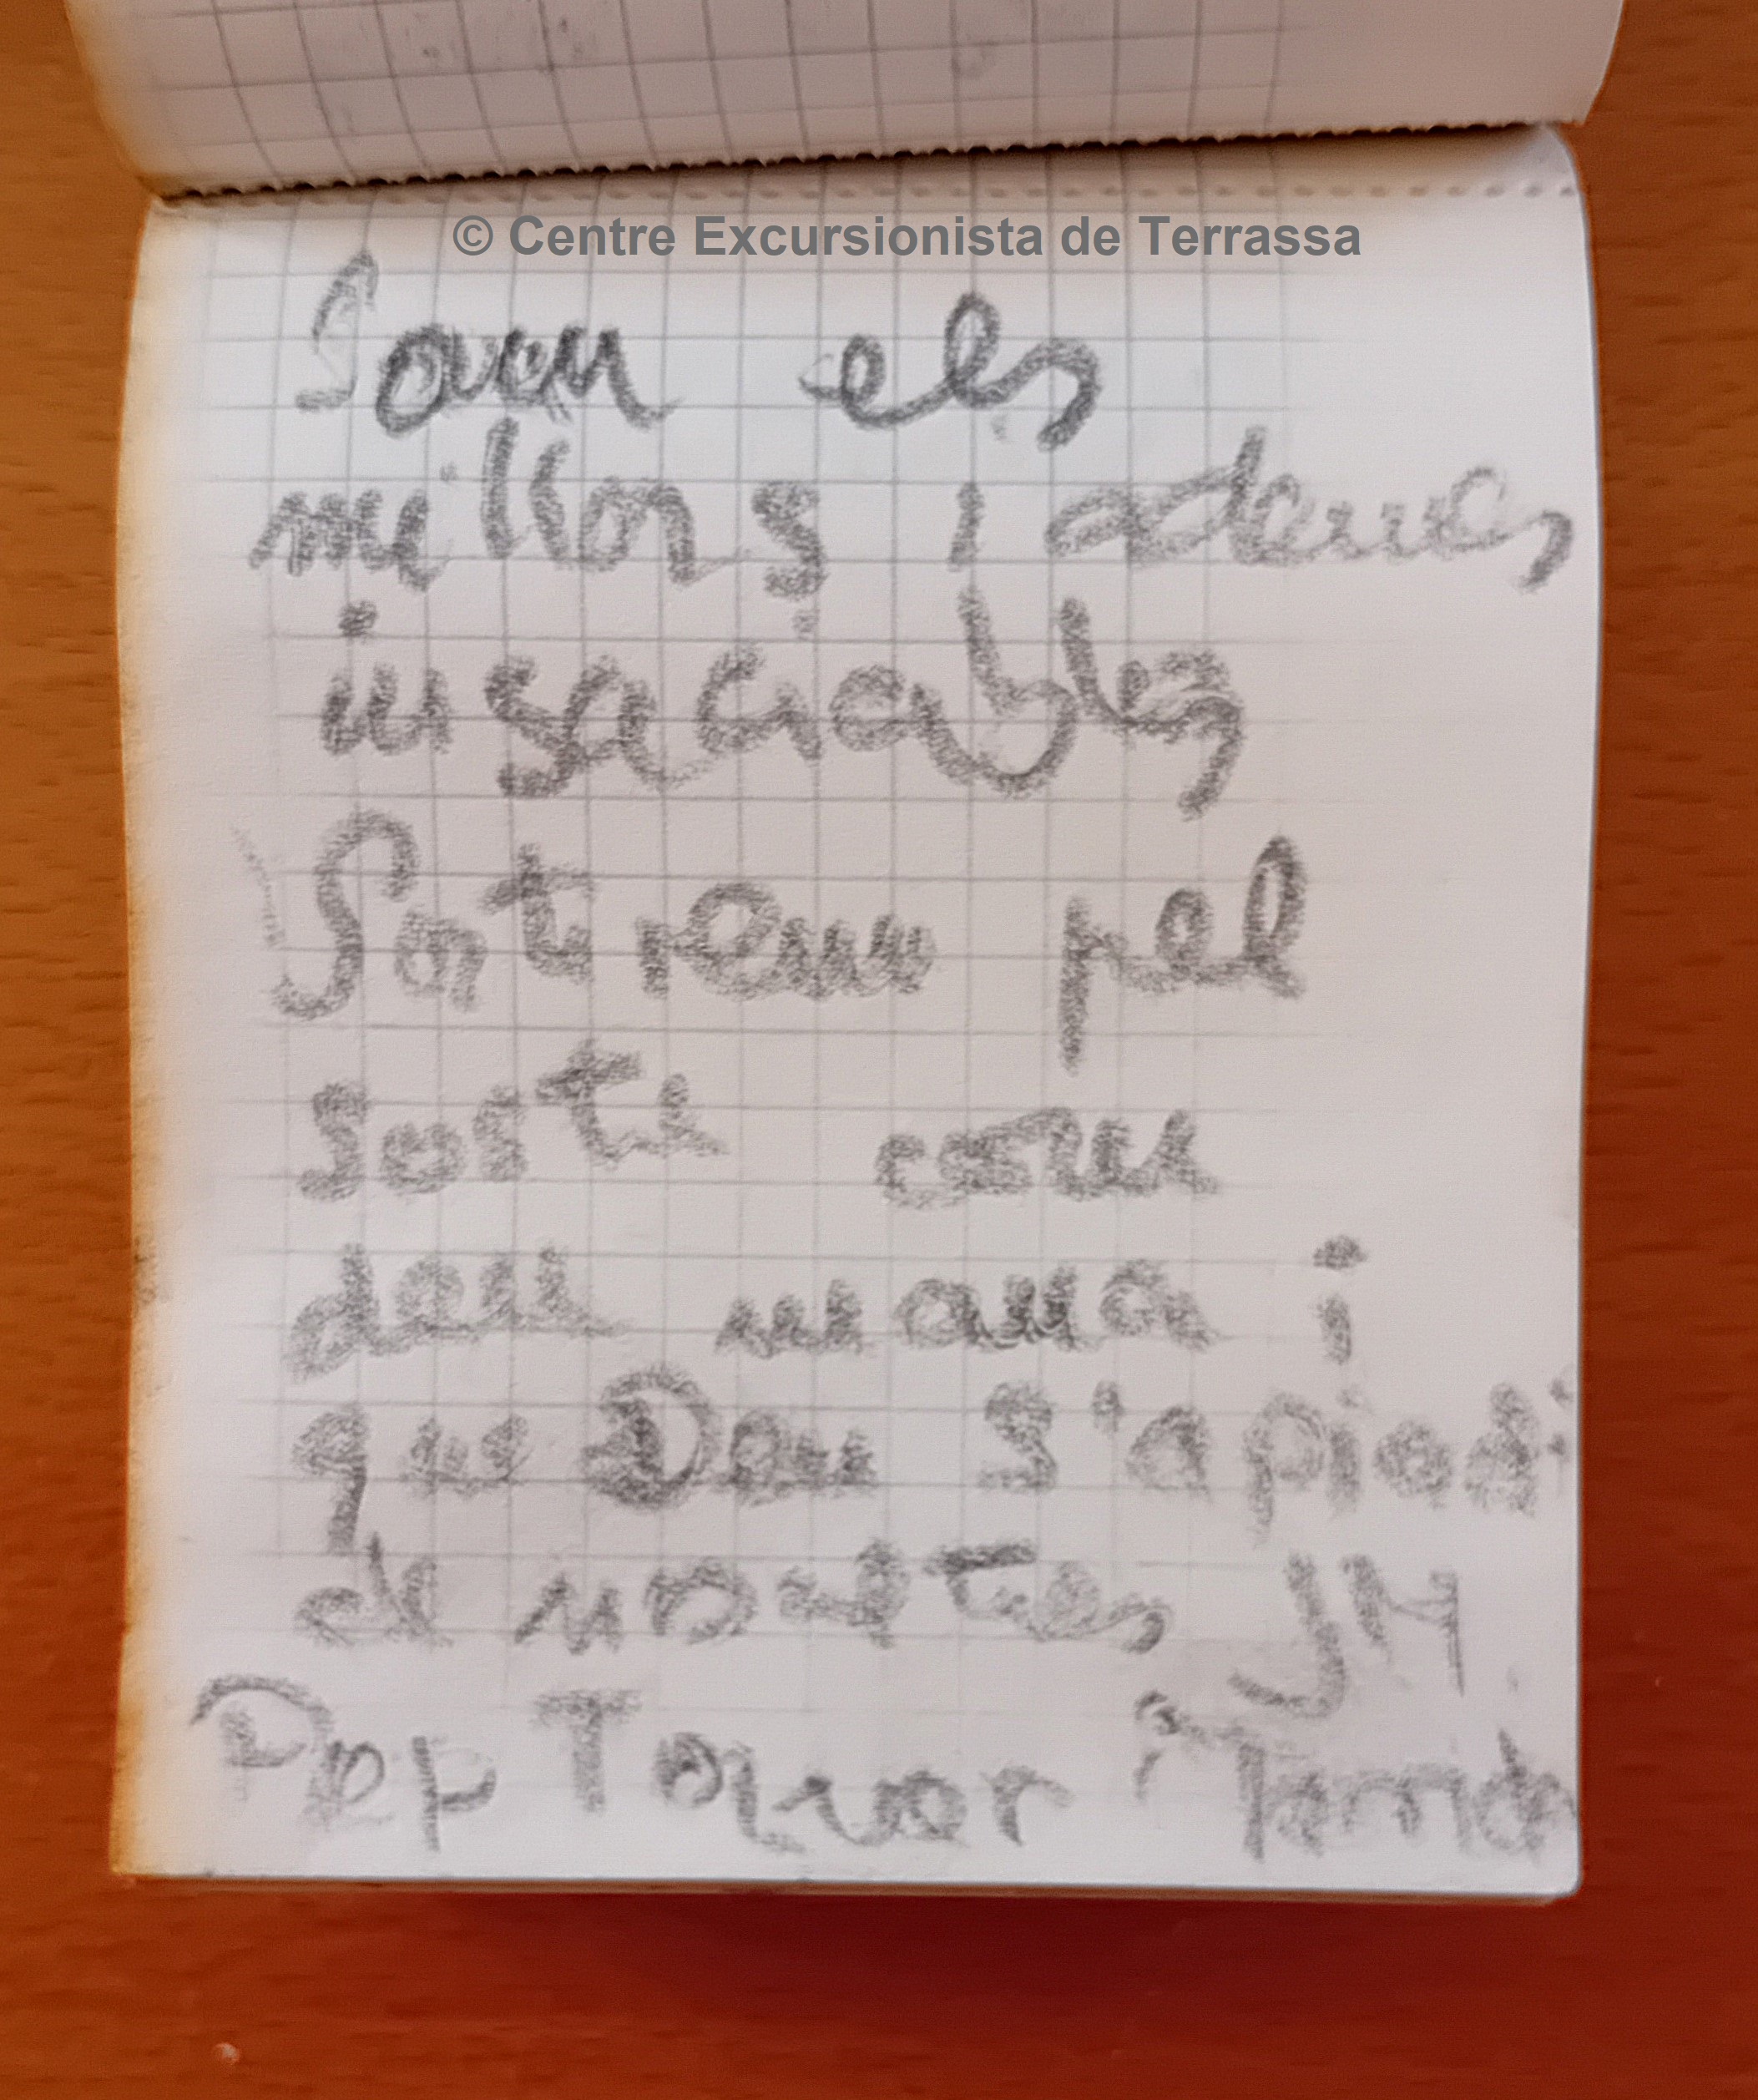 © Centre Excursionista de Terrassa
Som els
millors i ademes
insaciables
Sortirem pel
sostre com
deu mana i
que Deu s'apiadi
de nosaltres JM
Pep